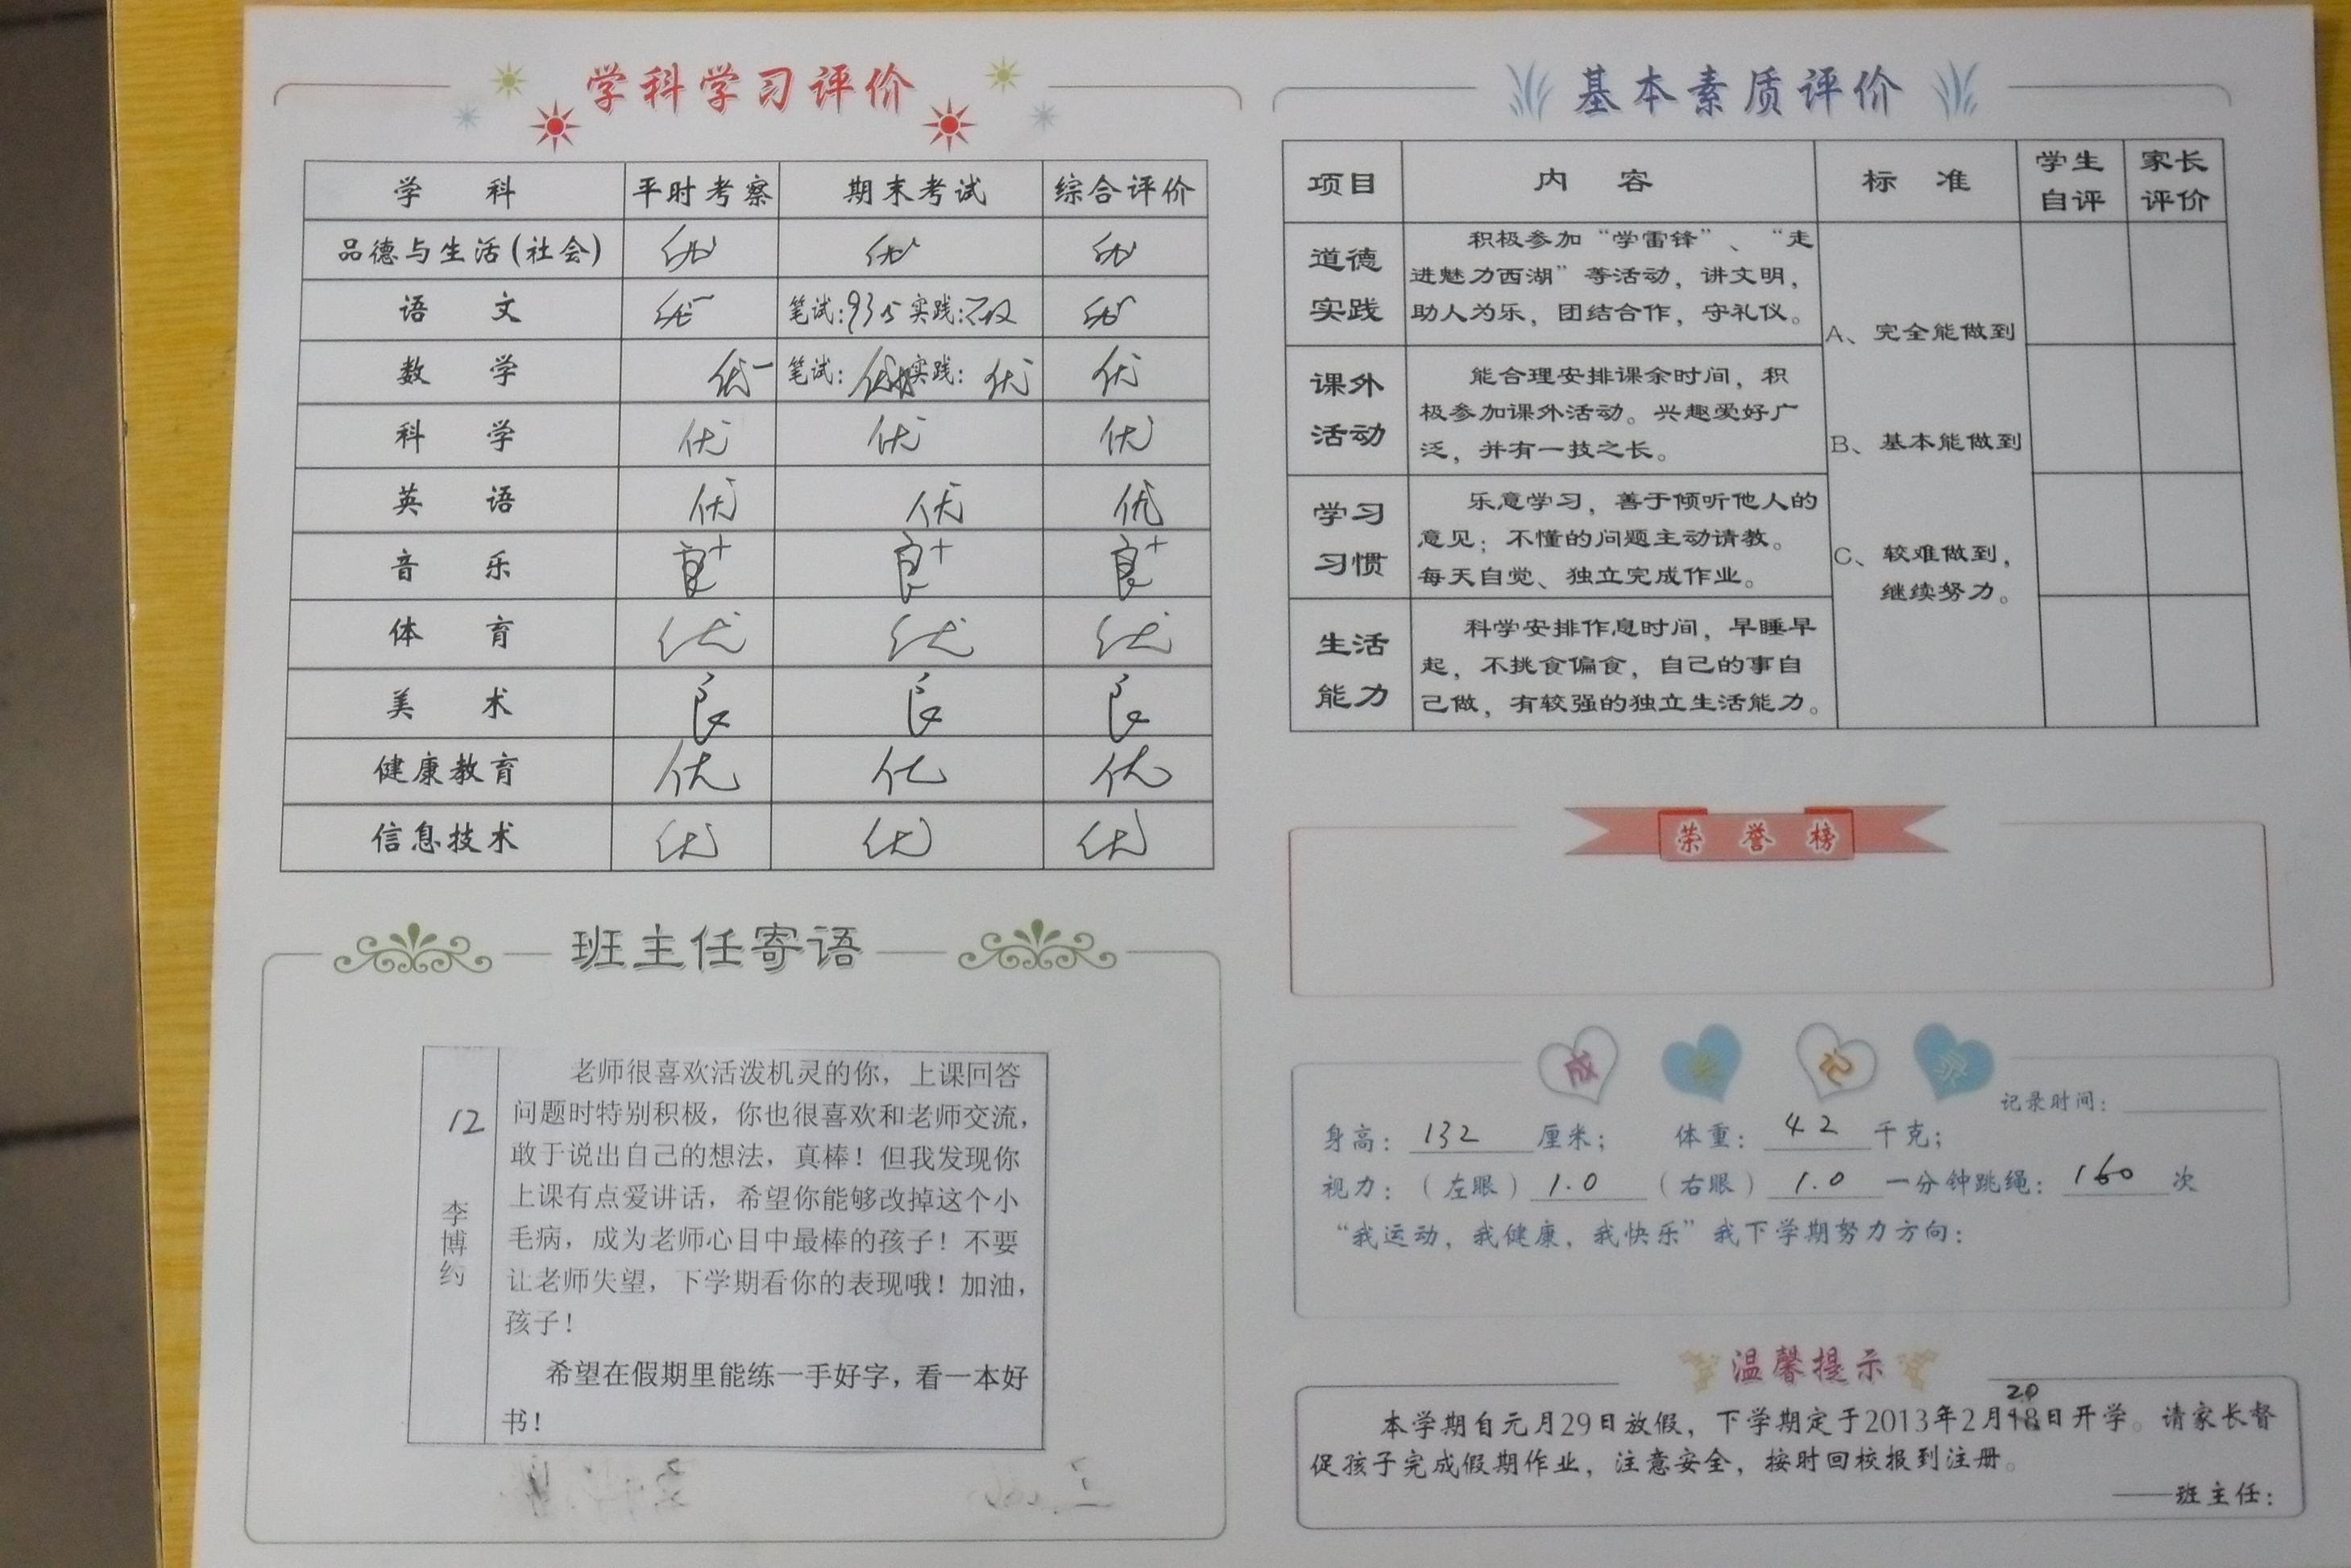 学科学习评价
学 科 平时考察 期末考试 综合评价
品德与生活(社会) 优 优 优
语 文 优- 笔试:93.5 实践: 优-
数 学 优- 笔试: 实践: 优 优
科 学 优 优 优
英 语 优 优 优
音 乐 良+ 良+ 良+
体 育 优 优 优
美 术 良 良 良
健康教育 优 优 优
信息技术 优 优 优
班主任寄语
12
李博约
老师很喜欢活泼机灵的你，上课回答
问题时特别积极，你也很喜欢和老师交流，
敢于说出自己的想法，真棒！但我发现你
上课有点爱讲话，希望你能够改掉这个小
毛病，成为老师心目中最棒的孩子！不要
让老师失望，下学期看你的表现哦！加油，
孩子！
希望在假期里能练一手好字，看一本好
书！
基本素质评价
项目 内 容 标 准 学生自评 家长评价
道德
实践
积极参加“学雷锋”、“走
进魅力西湖”等活动，讲文明，
助人为乐，团结合作，守礼仪。
课外
活动
能合理安排课余时间，积
极参加课外活动。兴趣爱好广
泛，并有一技之长。
学习
习惯
乐意学习，善于倾听他人的
意见；不懂的问题主动请教。
每天自觉、独立完成作业。
生活
能力
科学安排作息时间，早睡早
起，不挑食偏食，自己的事自
己做，有较强的独立生活能力。
A、完全能做到
B、基本能做到
C、较难做到，
继续努力。
荣誉榜
成长记录
记录时间：
身高：132厘米； 体重：42千克；
视力：（左眼）1.0（右眼）1.0一分钟跳绳：160次
“我运动，我健康，我快乐”我下学期努力方向：
温馨提示
20
本学期自元月29日放假，下学期定于2013年2月18日开学。请家长督
促孩子完成假期作业，注意安全，按时回校报到注册。
——班主任：